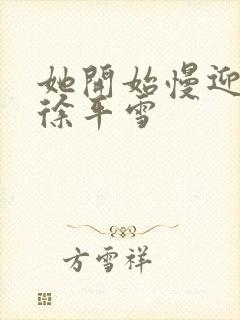 她開始慢迎
徐平雪
方雪祥